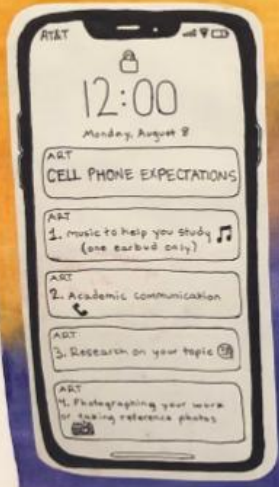 AT&T
12:00
Monday, August 8
ART
CELL PHONE EXPECTATIONS
ART
1. music to help you study
(one earbud only)
ART
2. Academic communication
ART
3. Research on your topic
ART
4. Photographing your work
or taking reference photos